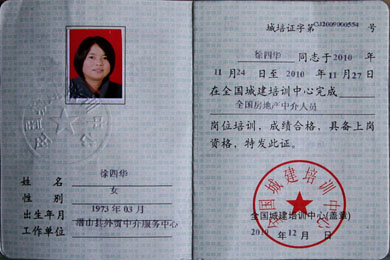 徐四华
姓名
女
性别
1973年03月
出生年月
潜山县外贸中介服务中心
工作单位
城培证字第CJ2009000554号
徐四华同志于2010年
11月24日至2010年11月27日
在全国城建培训中心完成
全国房地产中介人员
岗位培训，成绩合格，具备上岗
资格，特发此证。
全国城建培训中心
全国城建培训中心(盖章)
2010年12月 日